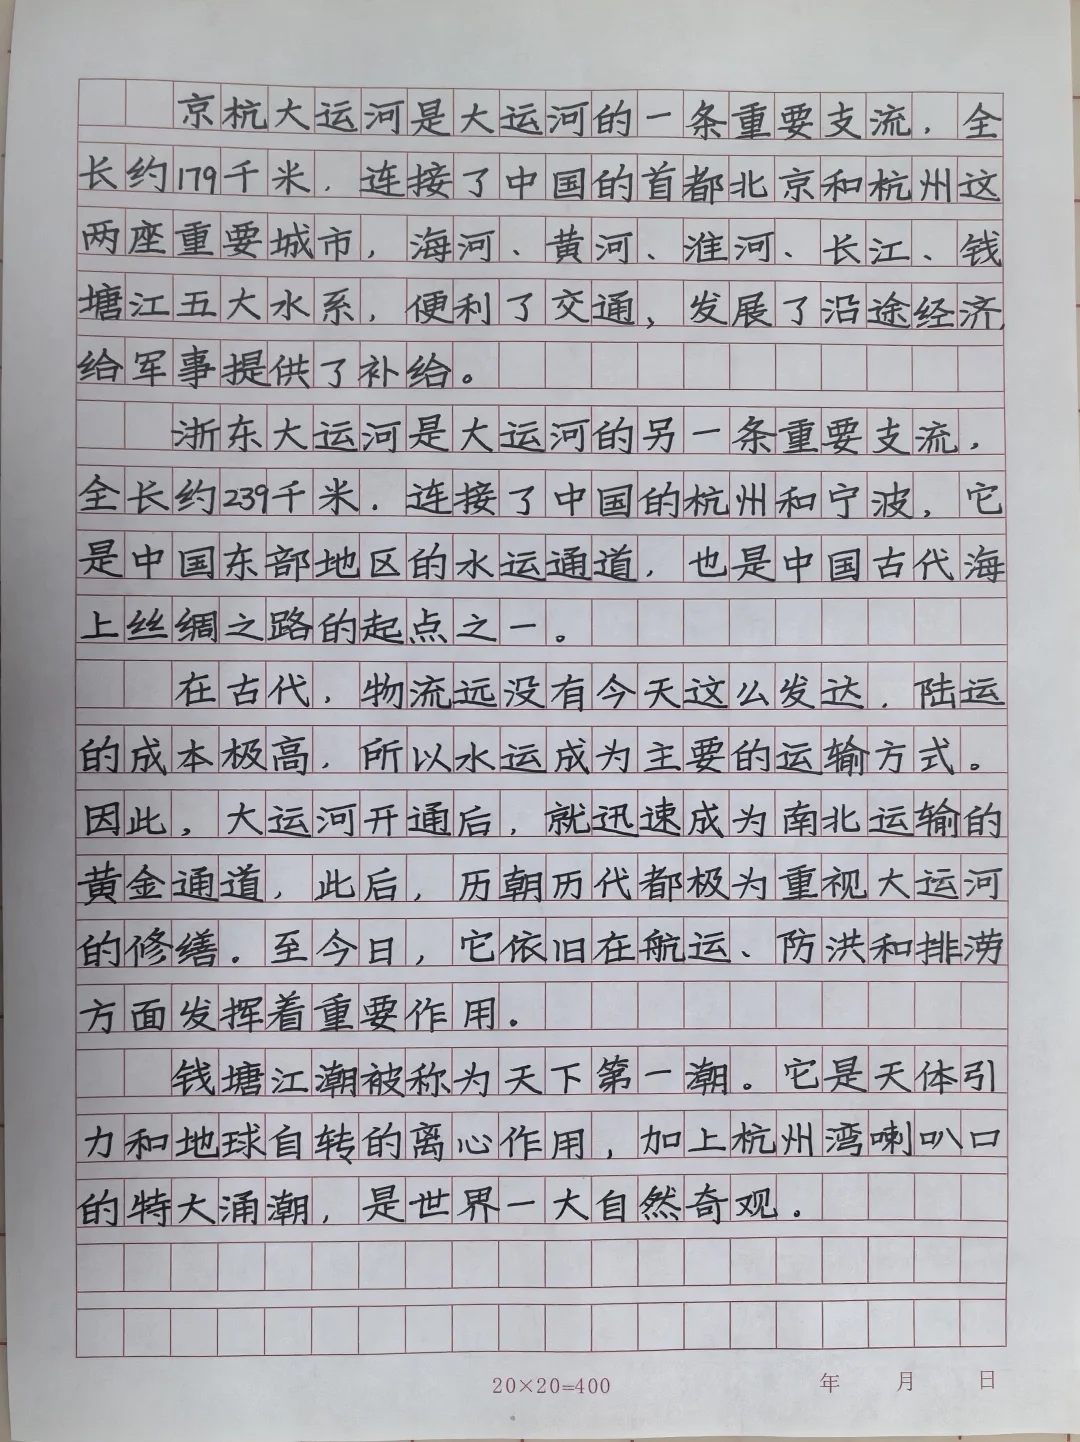 京杭大运河是大运河的一条重要支流，全
长约179千米，连接了中国的首都北京和杭州这
两座重要城市，海河、黄河、淮河、长江、钱
塘江五大水系，便利了交通，发展了沿途经济，
给军事提供了补给。
浙东大运河是大运河的另一条重要支流，
全长约239千米．连接了中国的杭州和宁波，它
是中国东部地区的水运通道，也是中国古代海
上丝绸之路的起点之一。
在古代，物流远没有今天这么发达，陆运
的成本极高，所以水运成为主要的运输方式。
因此，大运河开通后，就迅速成为南北运输的
黄金通道，此后，历朝历代都极为重视大运河
的修缮．至今日，它依旧在航运、防洪和排涝
方面发挥着重要作用．
钱塘江潮被称为天下第一潮。它是天体引
力和地球自转的离心作用，加上杭州湾喇叭口
的特大涌潮，是世界一大自然奇观．
20×20=400 年 月 日